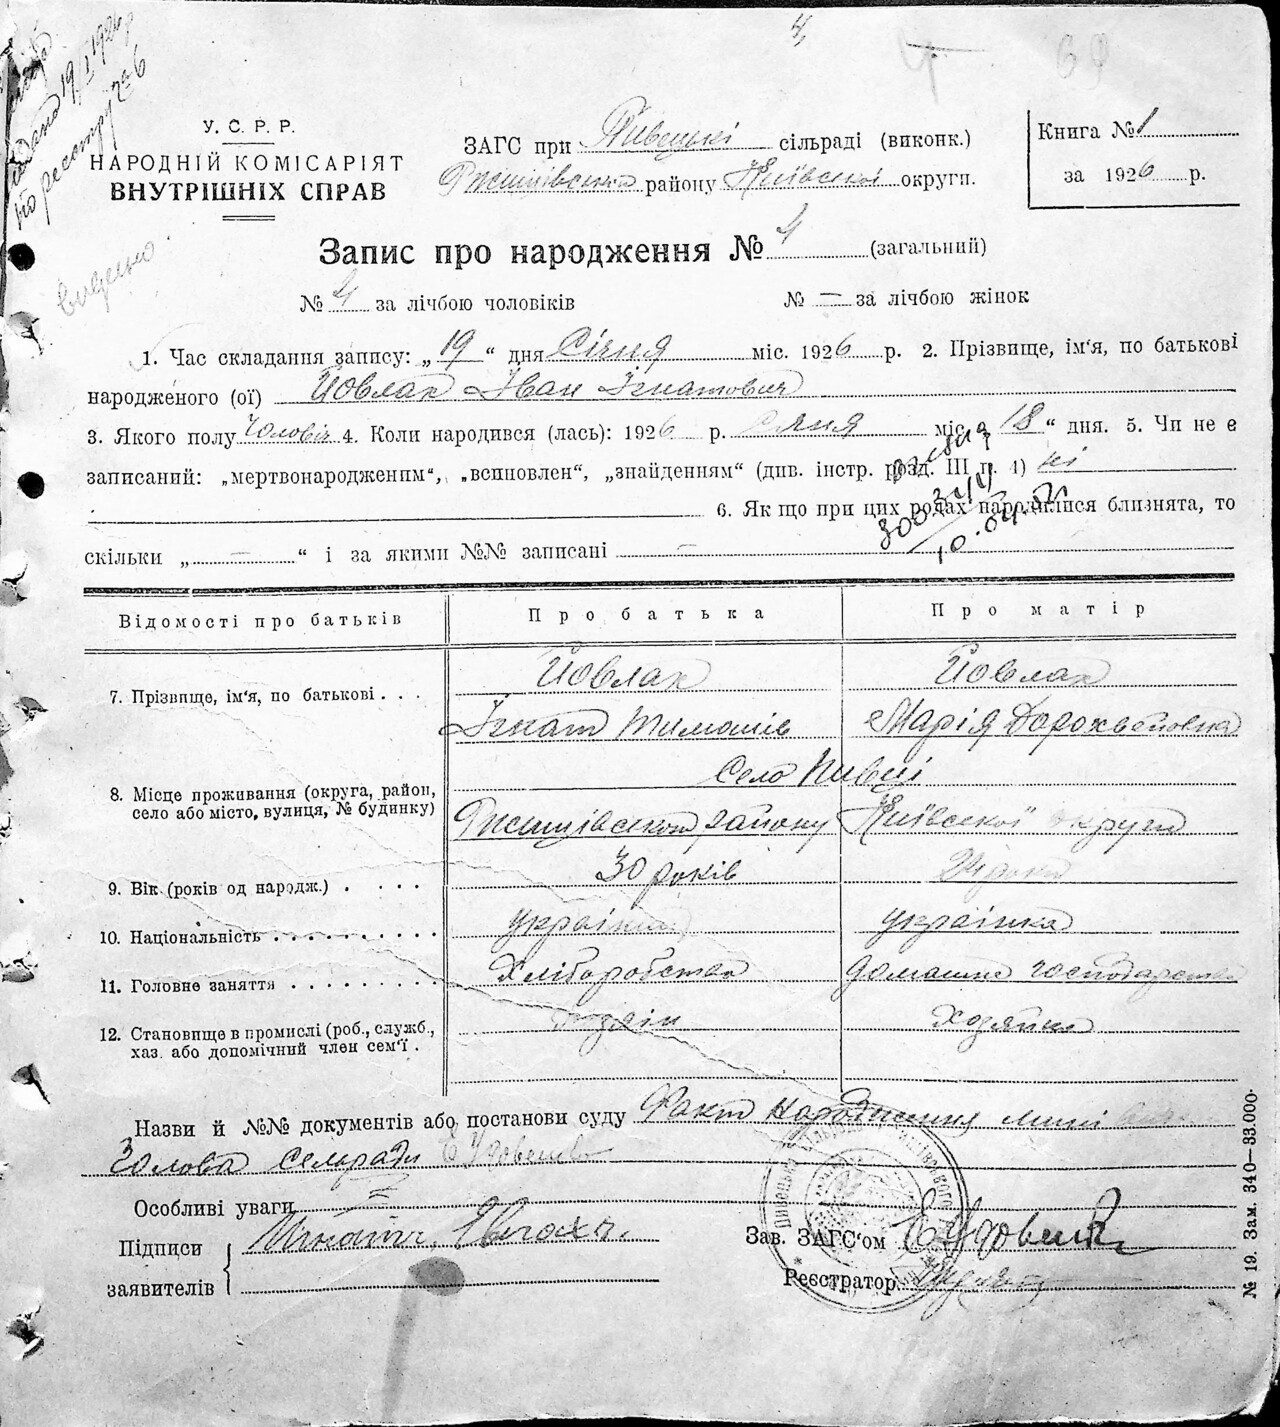 4
69
видано 19/I 1926 р
по реестру № 6
видано
У. С. Р. Р.
НАРОДНІЙ КОМІСАРІЯТ
ВНУТРІШНІХ СПРАВ
ЗАГС при Пивецькі сільраді (виконк.)
Ржищівськом району Київської округи.
Книга № 1
за 1926 р.
Запис про народження № 4 (загальний)
№ 4 за лічбою чоловіків № — за лічбою жінок
1. Час складання запису: „19“ дня Січня міс. 1926 р. 2. Прізвище, ім'я, по батькові
народженого (ої) Йовлак Іван Ігнатович
3. Якого полу Чоловіч 4. Коли народився (лась): 1926 р. Січня міс „18“ дня. 5. Чи не є
записаний: „мертвонародженим“, „всиновлен“, „знайденням“ (див. інстр. розд. III п. 4) ні
6. Як що при цих родах народилися близнята, то
скільки „ — “ і за якими №№ записані —
Відомості про батьків Про батька Про матір
7. Прізвище, ім'я, по батькові . . . Йовлак Йовлак
Ігнат Тимошів Марія Дорохвеївна
8. Місце проживання (округа, район, село або місто, вулиця, № будинку) Село Пивці
Ржищівськом району Київської округи
9. Вік (років од народж.) . . . . 30 років 24 роки
10. Національність . . . . . . . . . . україн українка
11. Головне заняття . . . . . . . . . Хліборобство домашнє господарство
12. Становище в промислі (роб., служб., хаз. або допомічний член сем'ї . хозяін хозяйка
Назви й №№ документів або постанови суду Факт народження
Голова сельради Є Удовенко
Особливі уваги =
Підписи
заявителів
Игнатъ Явлахъ.
Зав. ЗАГС'ом ЄУдовенко
Реєстратор
№ 19. Зам. 340—33.000.